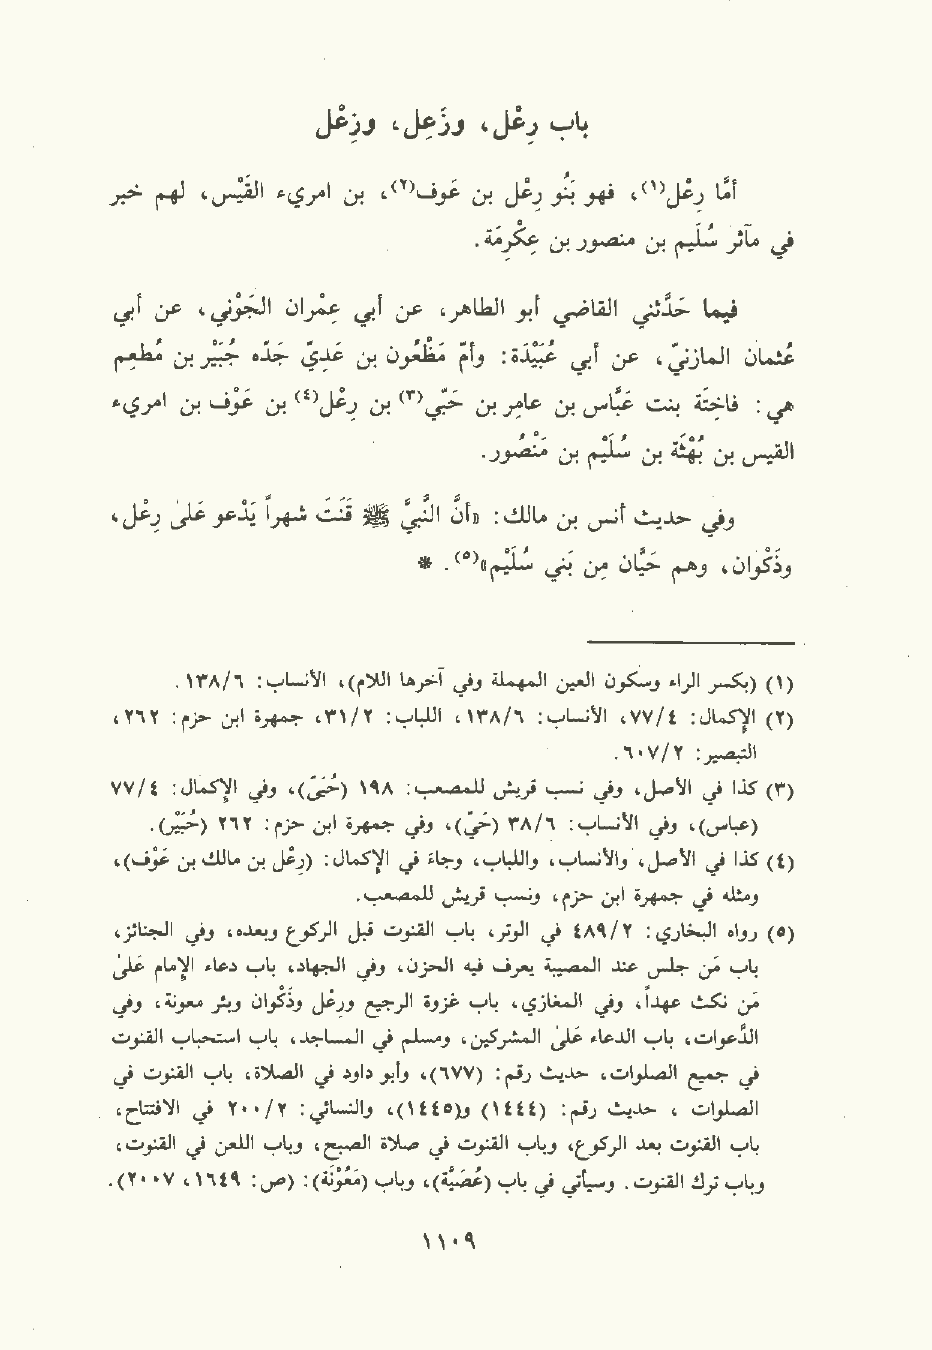 باب رِعْل، وزَعِل، وزِعْل
أمَّا رِعْل(١)، فهو بنُو رِعْل بن عَوف(٢)، بن امرىء القَيْس، لهم خبر
في مآثر سُلَيم بن منصور بن عِكْرِمَة.
فيما حَدَّثني القاضي أبو الطاهر، عن أبي عِمْران الجَوْني، عن أبي
عُثمان المازنيّ، عن أبي عُبَيْدَة: وأم مَظْعُون بن عَدِيّ جَدّه جُبَيْر بن مُطعِم
هي: فاخِتَة بنت عَبَّاس بن عامِر بن حَبِيّ(٣) بن رِعْل(٤) بن عَوْف بن امرىء
القيس بن بُهْثَة بن سُلَيْم بن مَنْصُور.
وفي حديث أنس بن مالك: «أنَّ النَّبيَّ ﷺ قَنَتَ شهراً يَدْعو عَلىٰ رِعْل،
وذَكْوان، وهم حَيَّان مِن بَني سُلَيْم»(٥). *
(١) (بكسر الراء وسكون العين المهملة وفي آخرها اللام)، الأنساب: ١٣٨/٦.
(٢) الإكمال: ٧٧/٤، الأنساب: ١٣٨/٦، اللباب: ٣١/٢، جمهرة ابن حزم: ٢٦٢،
التبصير: ٦٠٧/٢.
(٣) كذا في الأصل، وفي نسب قريش للمصعب: ١٩٨ (حُيَيّ)، وفي الإكمال: ٧٧/٤
(عباس)، وفي الأنساب: ٣٨/٦ (حَيّ)، وفي جمهرة ابن حزم: ٢٦٢ (حُيَيْر).
(٤) كذا في الأصل، والأنساب، واللباب، وجاء في الإكمال: (رِعْل بن مالك بن عَوْف)،
ومثله في جمهرة ابن حزم، ونسب قريش للمصعب.
(٥) رواه البخاري: ٤٨٩/٢ في الوتر، باب القنوت قبل الركوع وبعده، وفي الجنائز،
باب مَن جلس عند المصيبة يعرف فيه الحزن، وفي الجهاد، باب دعاء الإمام عَلىٰ
مَن نكث عهداً، وفي المغازي، باب غزوة الرجيع ورِعْل وذكْوان وبئر معونة، وفي
الدَّعوات، باب الدعاء عَلىٰ المشركين، ومسلم في المساجد، باب استحباب القنوت
في جميع الصلوات، حديث رقم: (٦٧٧)، وأبو داود في الصلاة، باب القنوت في
الصلوات ، حديث رقم: (١٤٤٤) و(١٤٤٥)، والنسائي: ٢٠٠/٢ في الافتتاح،
باب القنوت بعد الركوع، وباب القنوت في صلاة الصبح، وباب اللعن في القنوت،
وباب ترك القنوت. وسيأتي في باب (عُصَيَّة)، وباب (مَعُوْنَة): (ص: ١٦٤٩، ٢٠٠٧).
١١٠٩